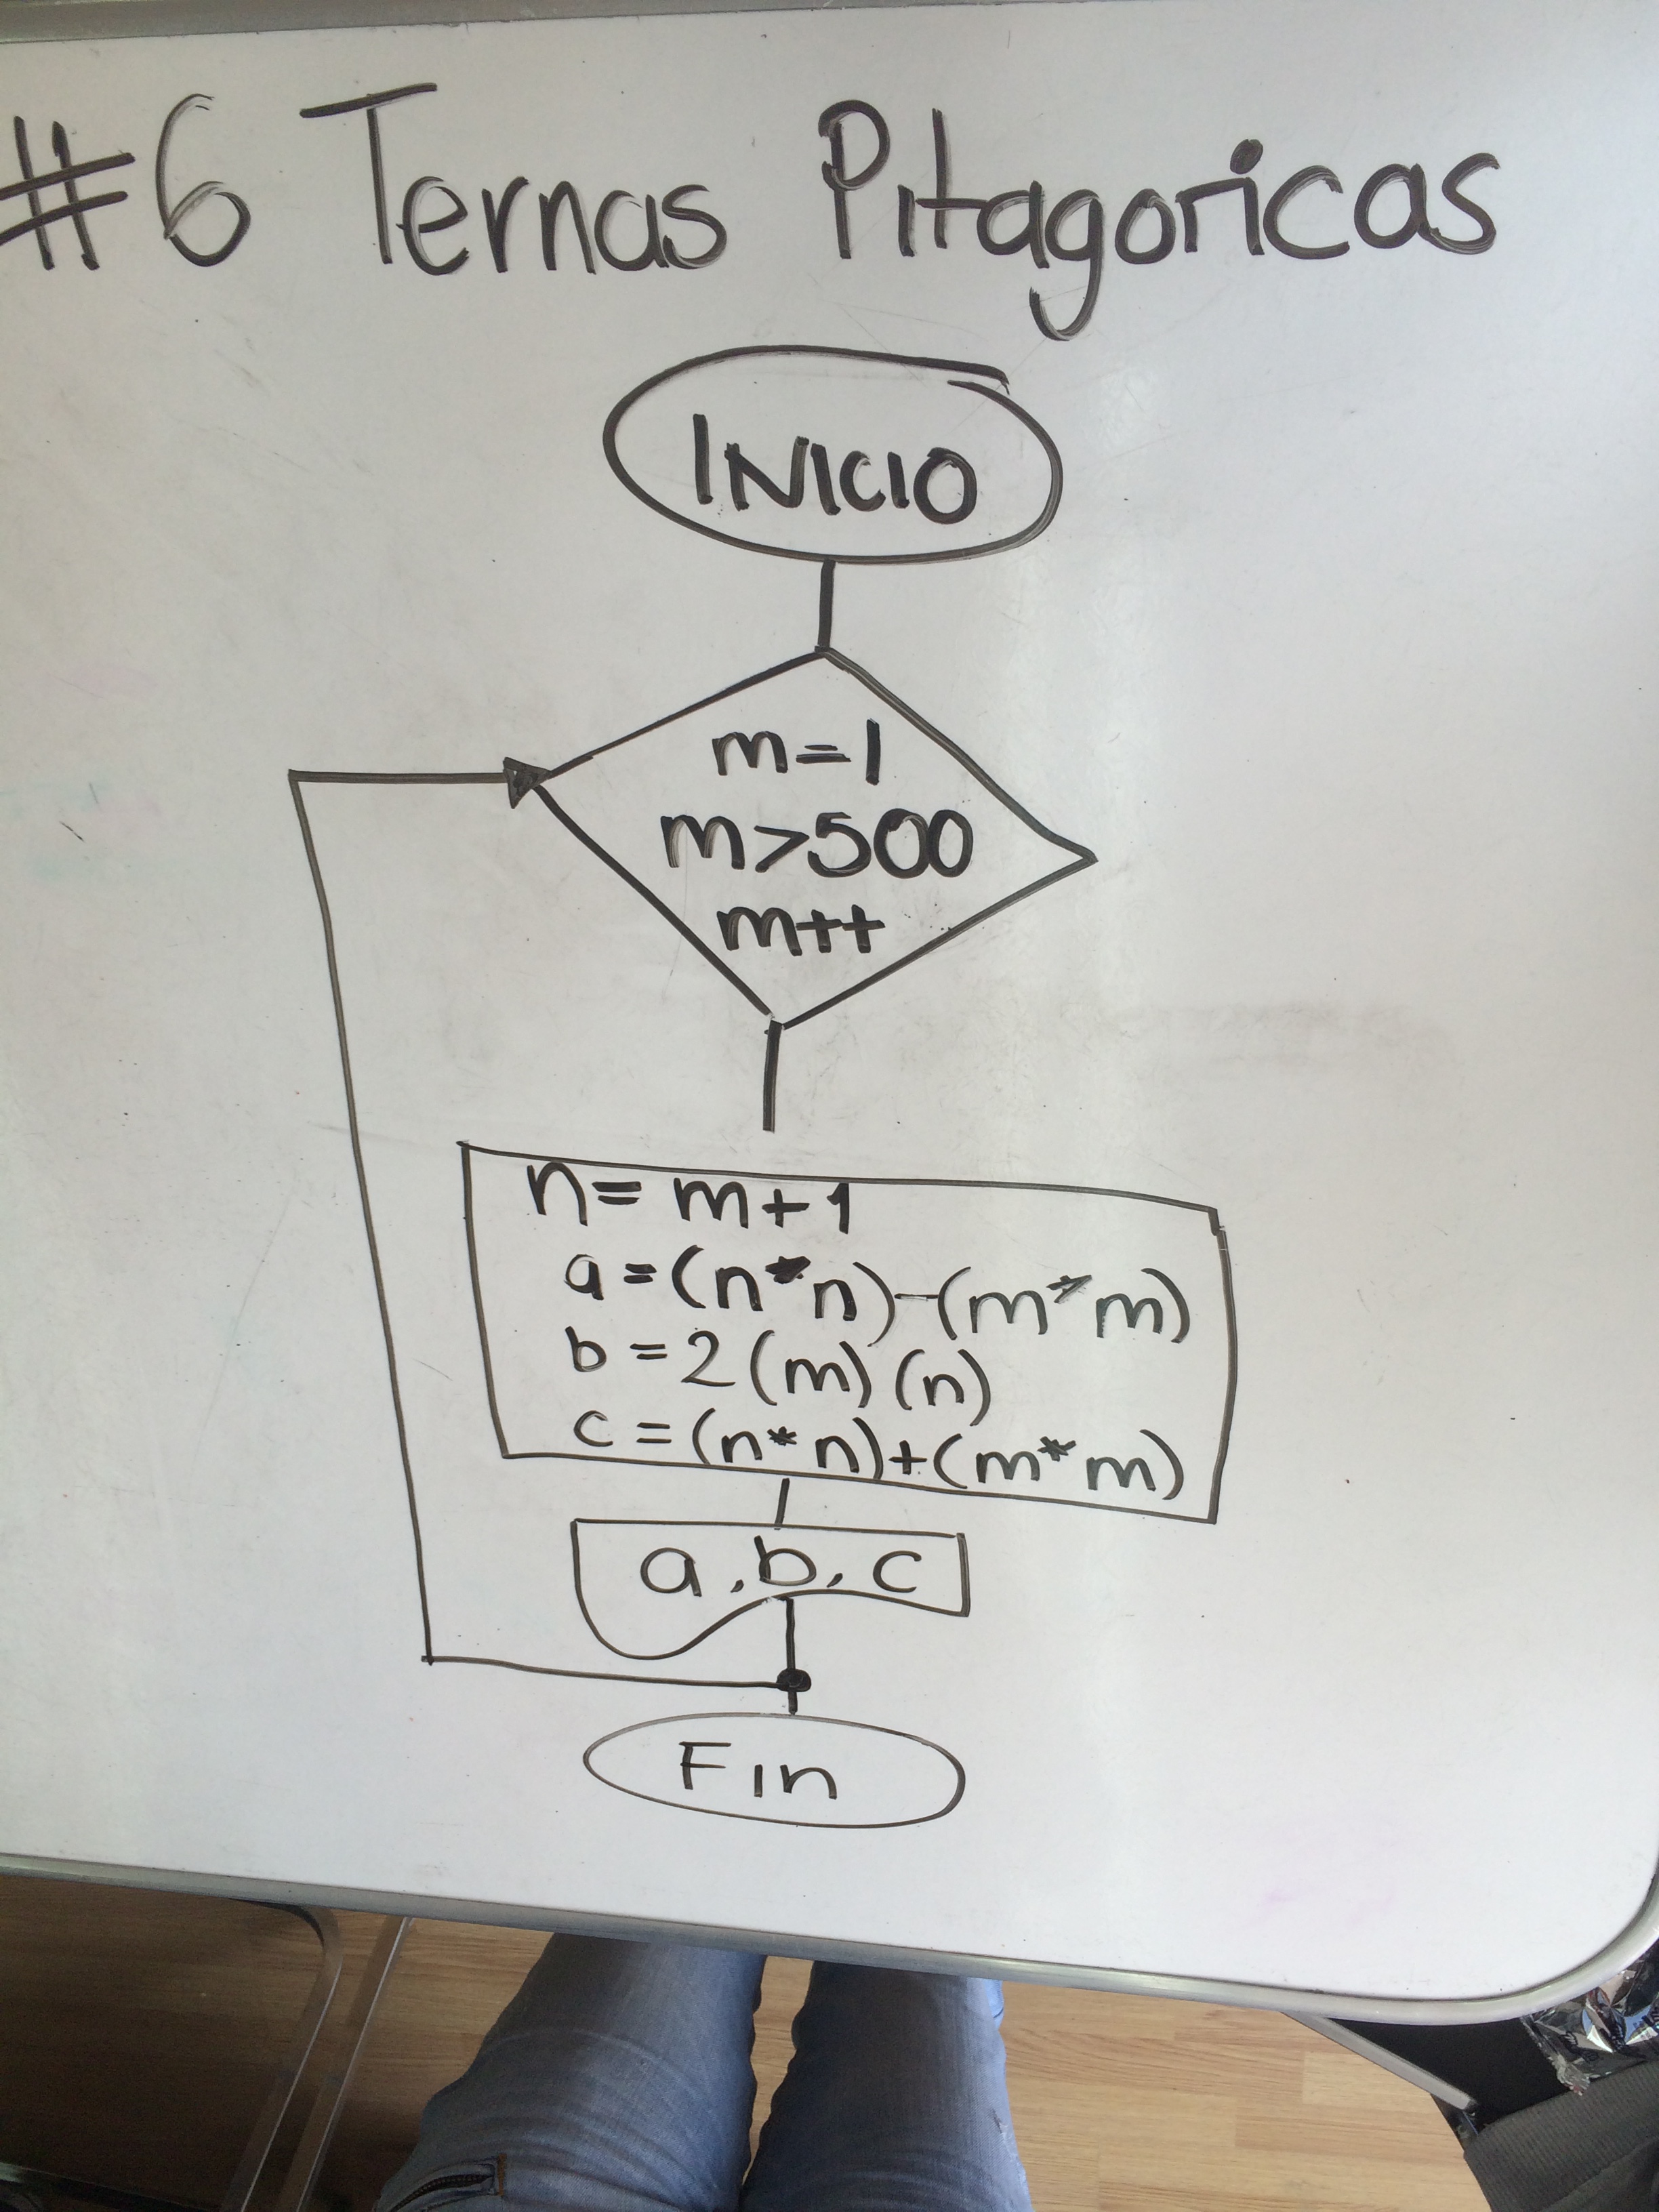 #6 Ternas Pitagoricas
INICIO
m=1
m>500
m++
n= m+1
a=(n*n)-(m*m)
b=2(m)(n)
c=(n*n)+(m*m)
a,b,c
Fin